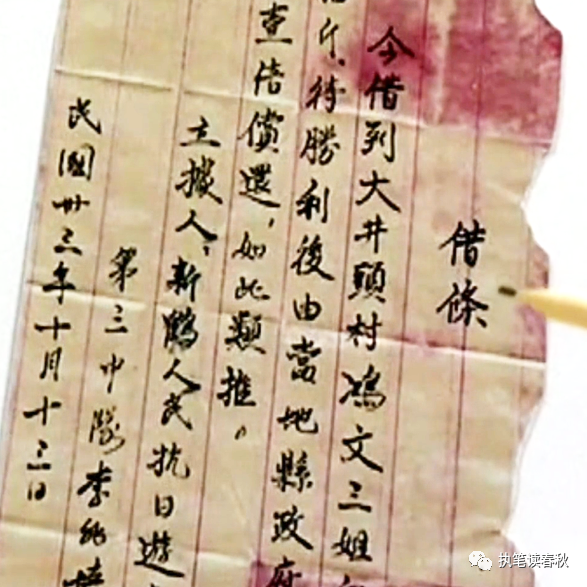 借條
今借到大井頭村馮文三姐
斤，待勝利後由當地縣政府
查借償還，如此類推。
立據人：新鶴人民抗日遊
第三中隊李兆培
民國卅三年十月十三日
执笔读春秋